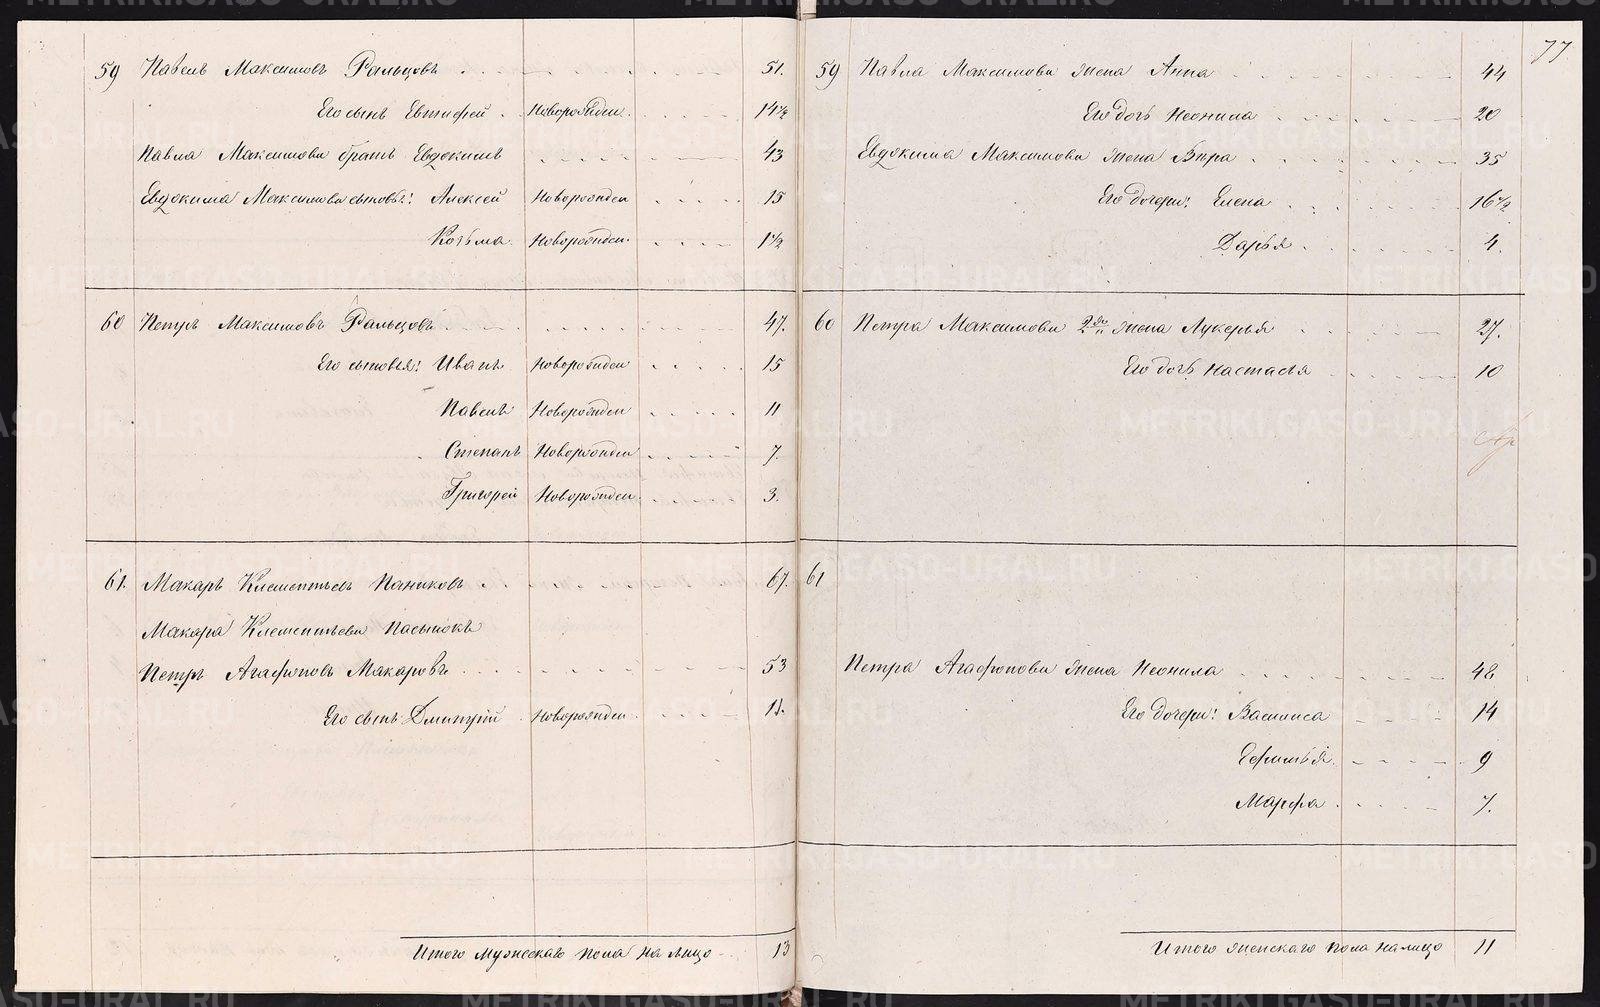 77
59 Павелъ Максимовъ Ральцовъ 51.
Его сынъ Евтифей Новорожден. 14½
Павла Максимова братъ Евдокимъ 43
Евдокима Максимова сыновья: Алексей Новорожден 15
Козьма Новорожден. 1½
60 Петръ Максимовъ Ральцовъ 47.
Его сыновья: Иванъ Новорожден 15
Павелъ Новорожден 11
Степанъ Новорожден 7
Григорей Новорожден 3.
61. Макаръ Клементьевъ Паньковъ 67.
Макара Клементьева пасынокъ
Петръ Агафоновъ Макаровъ 53
Его сынъ Дмитрій Новорожден 11.
Итого мужескаго пола на лицо 13
59 Павла Максимова жена Анна 44
Его дочь Неонила 20
Евдокима Максимова жена Вѣра 35
Его дочери: Елена 16½
Дарья 4.
60 Петра Максимова 2я жена Лукерья 27.
Его дочь Настасья 10
61
Петра Агафонова жена Неонила 48
Его дочери: Василиса 14
Ефимья 9
Марфа 7.
Итого женскаго пола налицо 11
METRIKI.GASO-URAL.RU